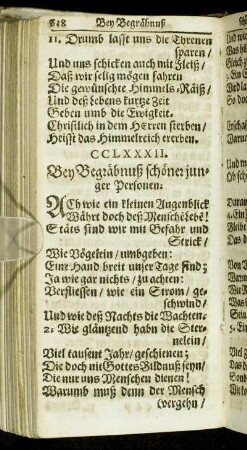 638 Bey Begräbnuß
11. Drumb lasst uns die Threnen
sparen/
Und uns schicken auch mit Fleiß/
Daß wir selig mögen fahren
Die gewünschte Himmels-Räiß/
Und deß Lebens kurtze Zeit
Geben umb die Ewigkeit.
Christlich in dem HErren sterben/
Heisst das Himmelreich ererben.
CCLXXXII.
Bey Begräbnuß schöner jun-
ger Personen.
ACh wie ein kleinen Augenblick
Währt doch deß Menschē Lebē!
Stäts sind wir mit Gefahr und
Strick/
Wie Vögelein/umbgeben:
Eine Hand breit unser Tage sind;
Ja wie gar nichts/zu achten:
Verfliessen/wie ein Strom/ge-
schwind/
Und wie deß Nachts die Wachten.
2. Wie gläntzend habn die Ster-
nelein/
Viel tausent Jahr/geschienen;
Die doch nit Gottes Bildnuß seyn/
Die nur uns Menschen dienen!
Warumb muß denn der Mensch
vergehn/